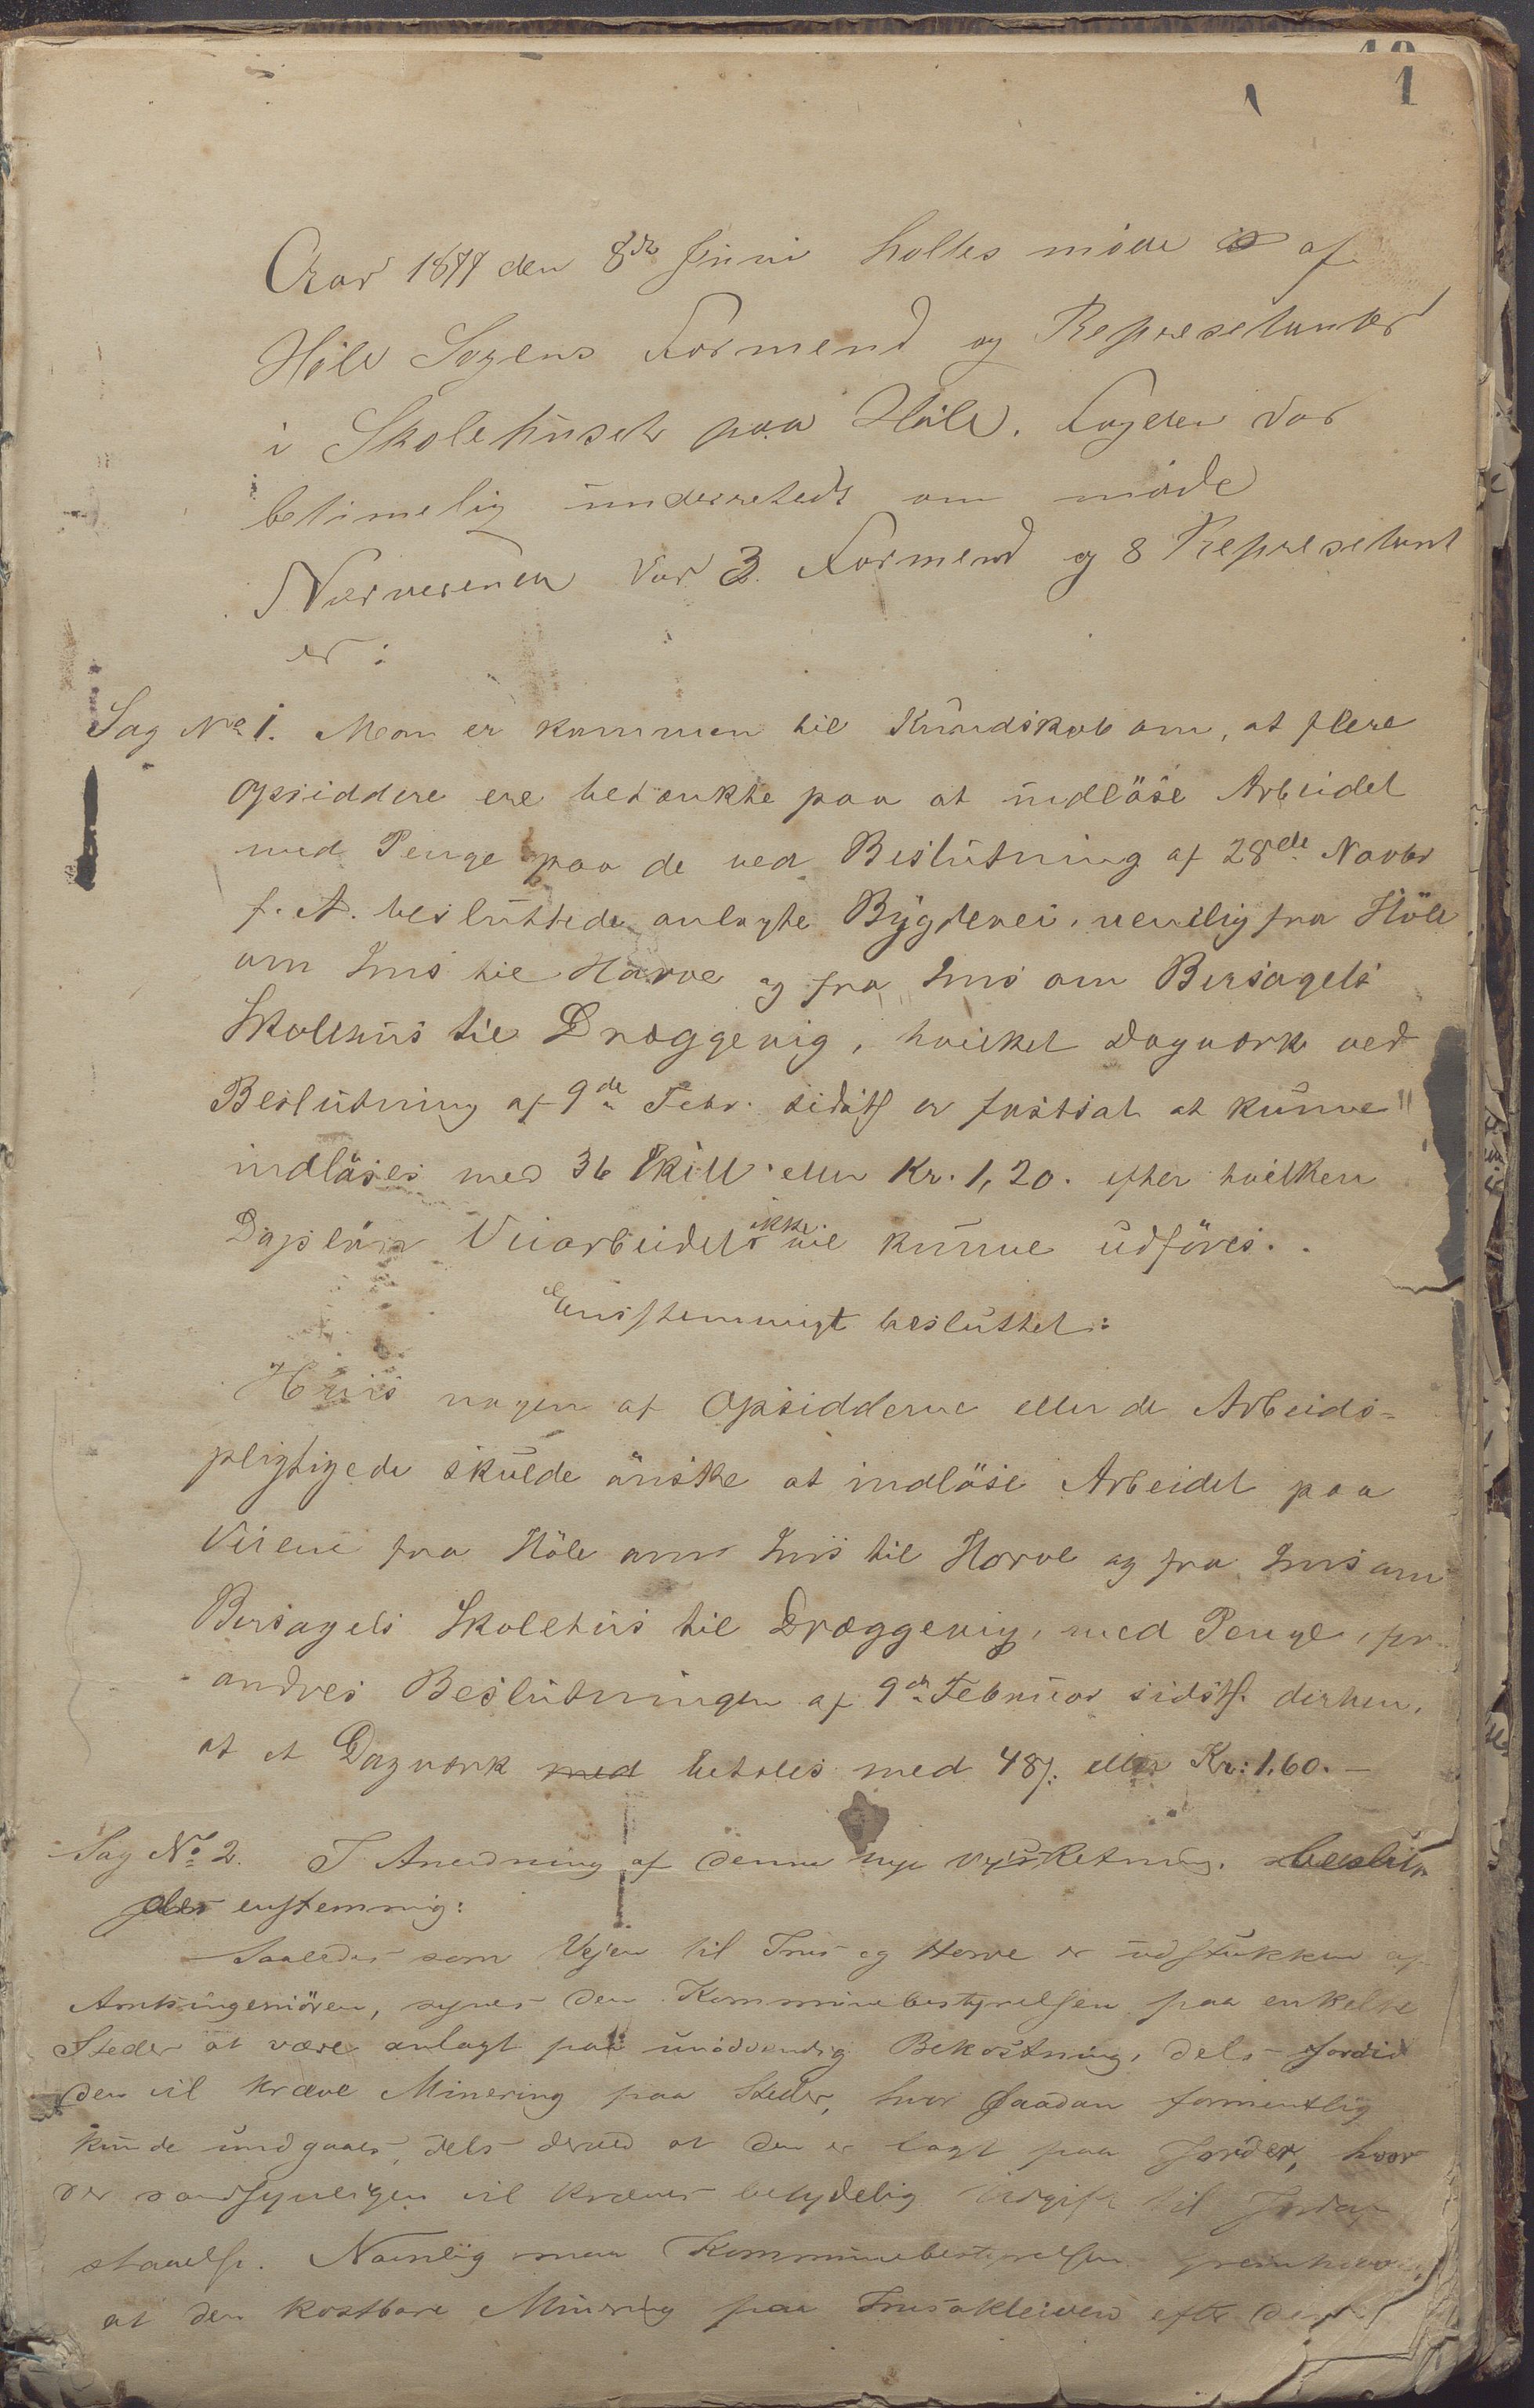 1
Aar 1877 den 8de Juni holtes möde af
Höle Sogens Formend og Represetanter
i Skolehuset paa Höle. Fogden var
betimelig underretedt om möde
Nærverende var 3 Formend og 8 Represetant
er:
Sag No 1. Man er kommen til Kundskab om, at flere
Opsiddere ere betænkte paa at indlöse Arbeidet
med Penge paa de ved Beslutning af 28de Novbr
f. A. besluttede anlagte Bygdevei, nemlig fra Höle
om Ims til Harve og fra Ims om Bersagels
Skolehus til Dræggevig, hvilket Dagværk ved
Beslutning af 9de Febr. sidstl er fastsat at kunne
indlöses med 36 Skill eller Kr. 1,20. efter hvilken
Daglön Veiarbeidet ikke vil kunne udföres.
Eenstemmigt besluttet:
Hvis nogen af Opsidderne eller de Arbeids-
pligtigede skulde önske at indlöse Arbeidet paa
Veiene fra Höle om Ims til Horve og fra Ims om
Bersagels Skolehus til Dræggevig, med Penge, for-
andres Beslutningen af 9de Februar sidstl. derhen,
at et Dagværk med betales med 48 ß. eller Kr: 1,60.-
Sag No 2. I Anledning af denne nye beslut
des enstemmig:
Saaledes som Vejen til Ims og Horve er udstukken af
Amtsingeniören, synes den Kommunebestyrelsen paa enkelte
Steder at være anlagt paa unödvendig Bekostning, dels fordi
den vil kræve Minering paa Steder, hvor saadan formentlig
kunde undgaaes, dels derved at den er lagt paa Jorder, hvor
der sandsynligen vil kræves betydelig Udgift til Jordaf
staaelse. Navnlig maa Kommunebestyrelsen fremhæve,
at den kostbare Minering paa Imsakleiven efter den